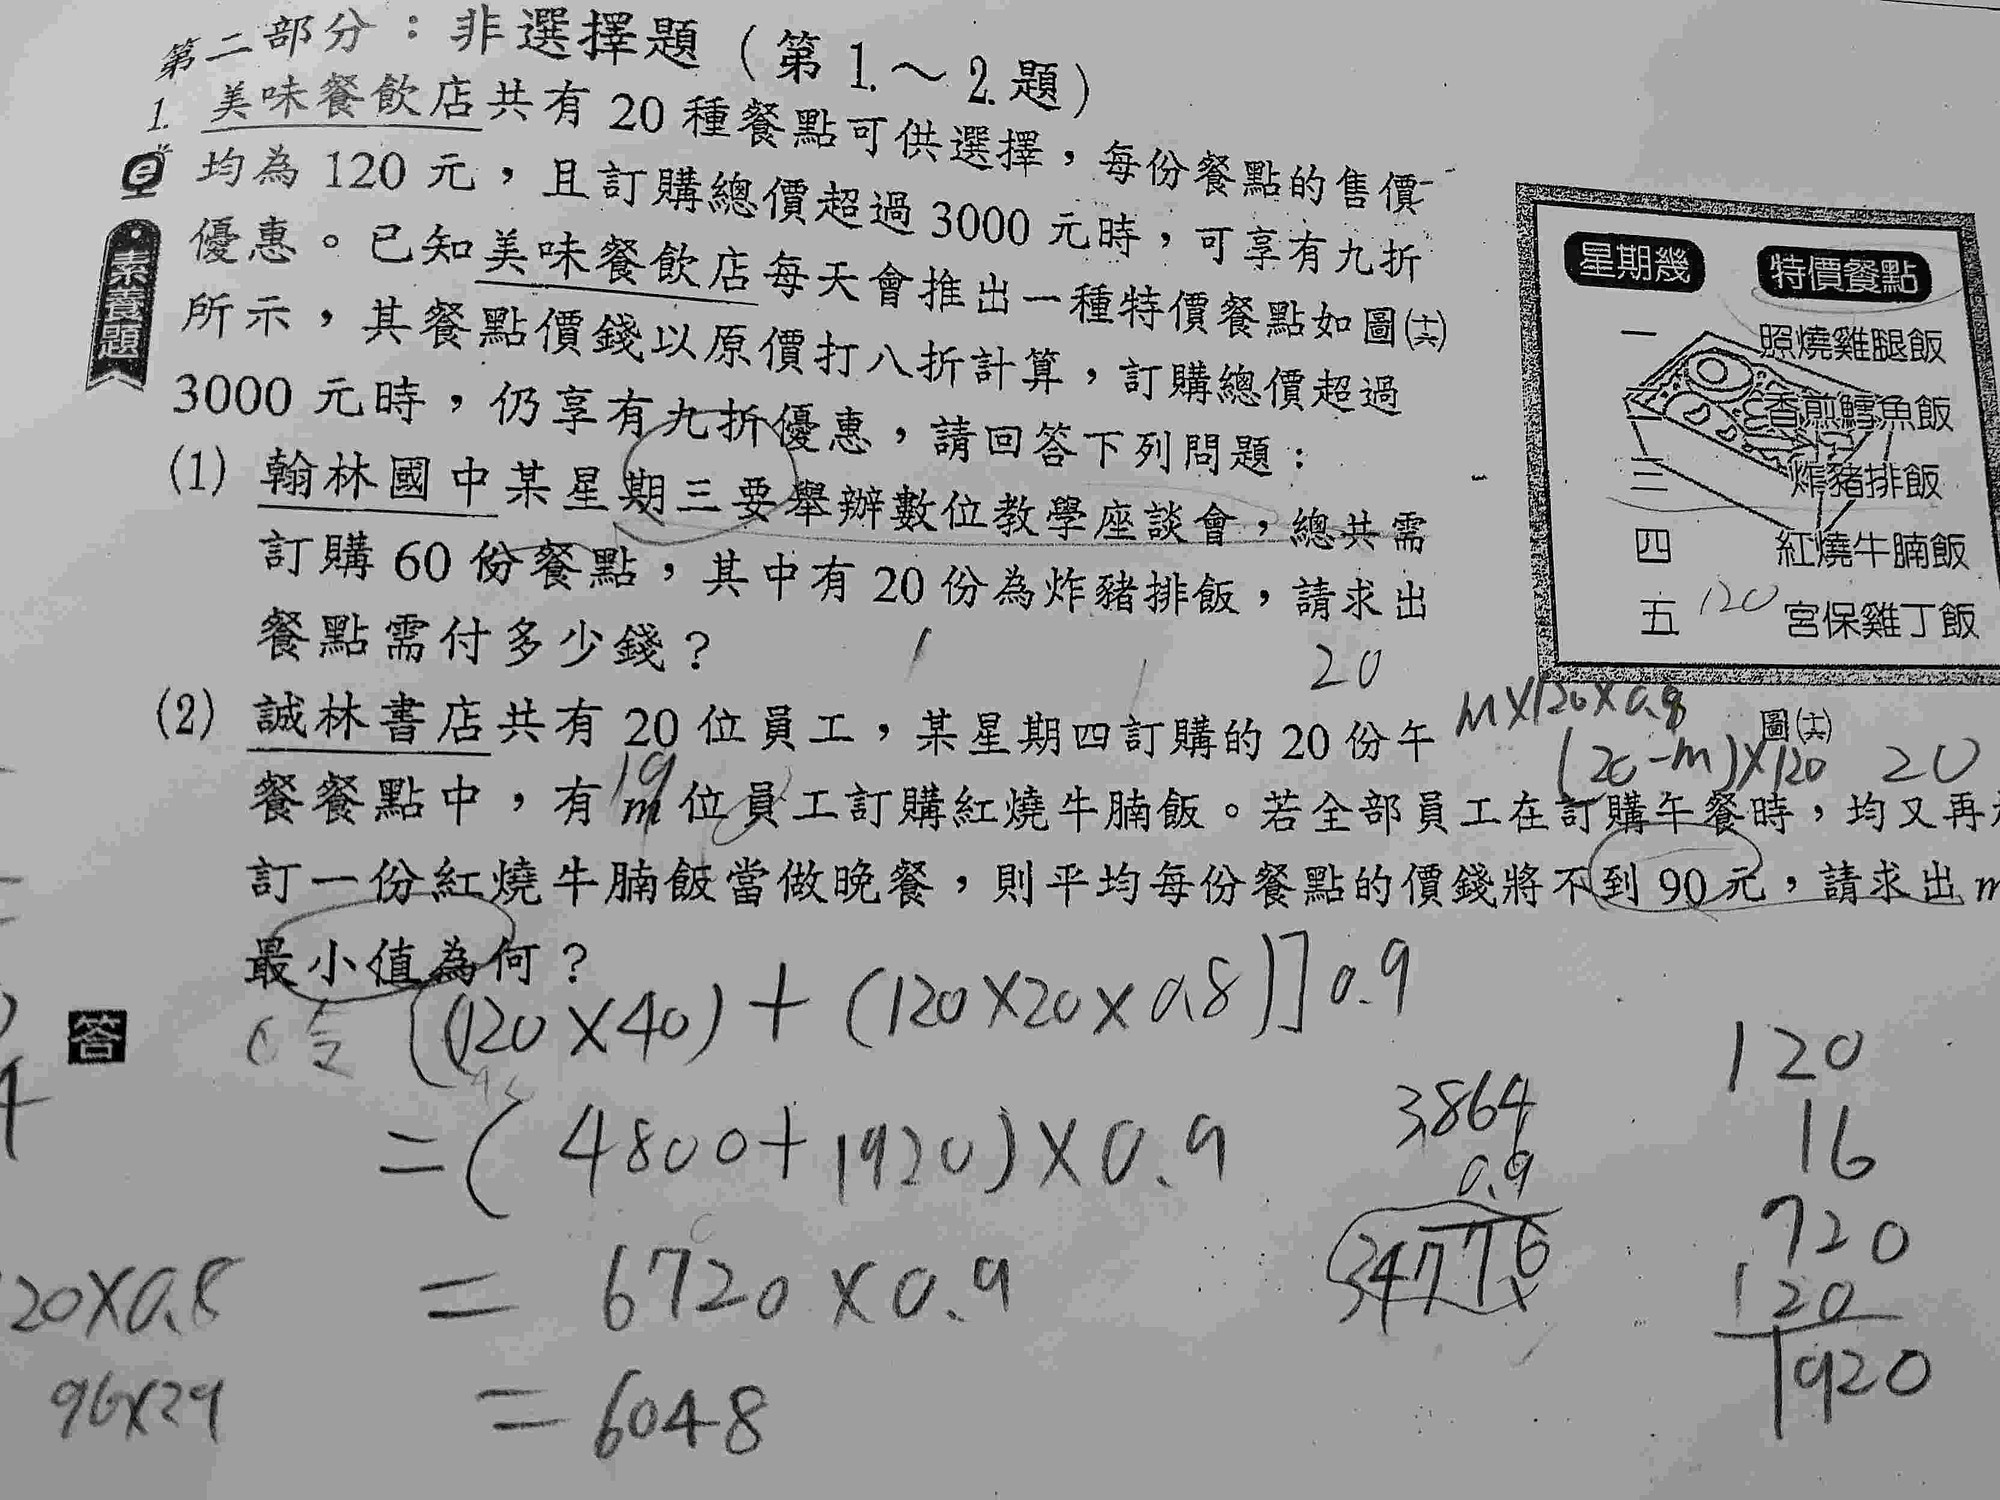 第二部分：非選擇題（第1.～2.題）
1. 美味餐飲店共有 20 種餐點可供選擇，每份餐點的售價
均為 120 元，且訂購總價超過 3000 元時，可享有九折
優惠。已知美味餐飲店每天會推出一種特價餐點如圖㈯
所示，其餐點價錢以原價打八折計算，訂購總價超過
3000 元時，仍享有九折優惠，請回答下列問題：
素養題
(1) 翰林國中某星期三要舉辦數位教學座談會，總共需
訂購 60 份餐點，其中有 20 份為炸豬排飯，請求出
餐點需付多少錢？
(2) 誠林書店共有 20 位員工，某星期四訂購的 20 份午
餐餐點中，有 m 位員工訂購紅燒牛腩飯。若全部員工在訂購午餐時，均又再
訂一份紅燒牛腩飯當做晚餐，則平均每份餐點的價錢將不到 90 元，請求出 m
最小值為何？
星期幾 特價餐點
一 照燒雞腿飯
香煎鱈魚飯
三 炸豬排飯
四 紅燒牛腩飯
五 120 宮保雞丁飯
20
m×120×0.8
(20-m)×120 20
19
答
[(120×40)+(120×20×0.8)]0.9
=(4800+1920)×0.9
=6720×0.9
=6048
3864
0.9
34776
120
16
720
120
1920
20×0.8
96×29